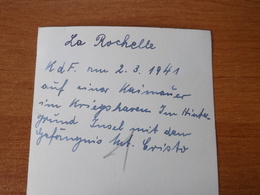 La Rochelle
KdF. am 2.3.1941
auf einer Kaimauer
im Kriegshaven Im Hinter-
grund Insel mit dem
gefängnis Mt. Cristo